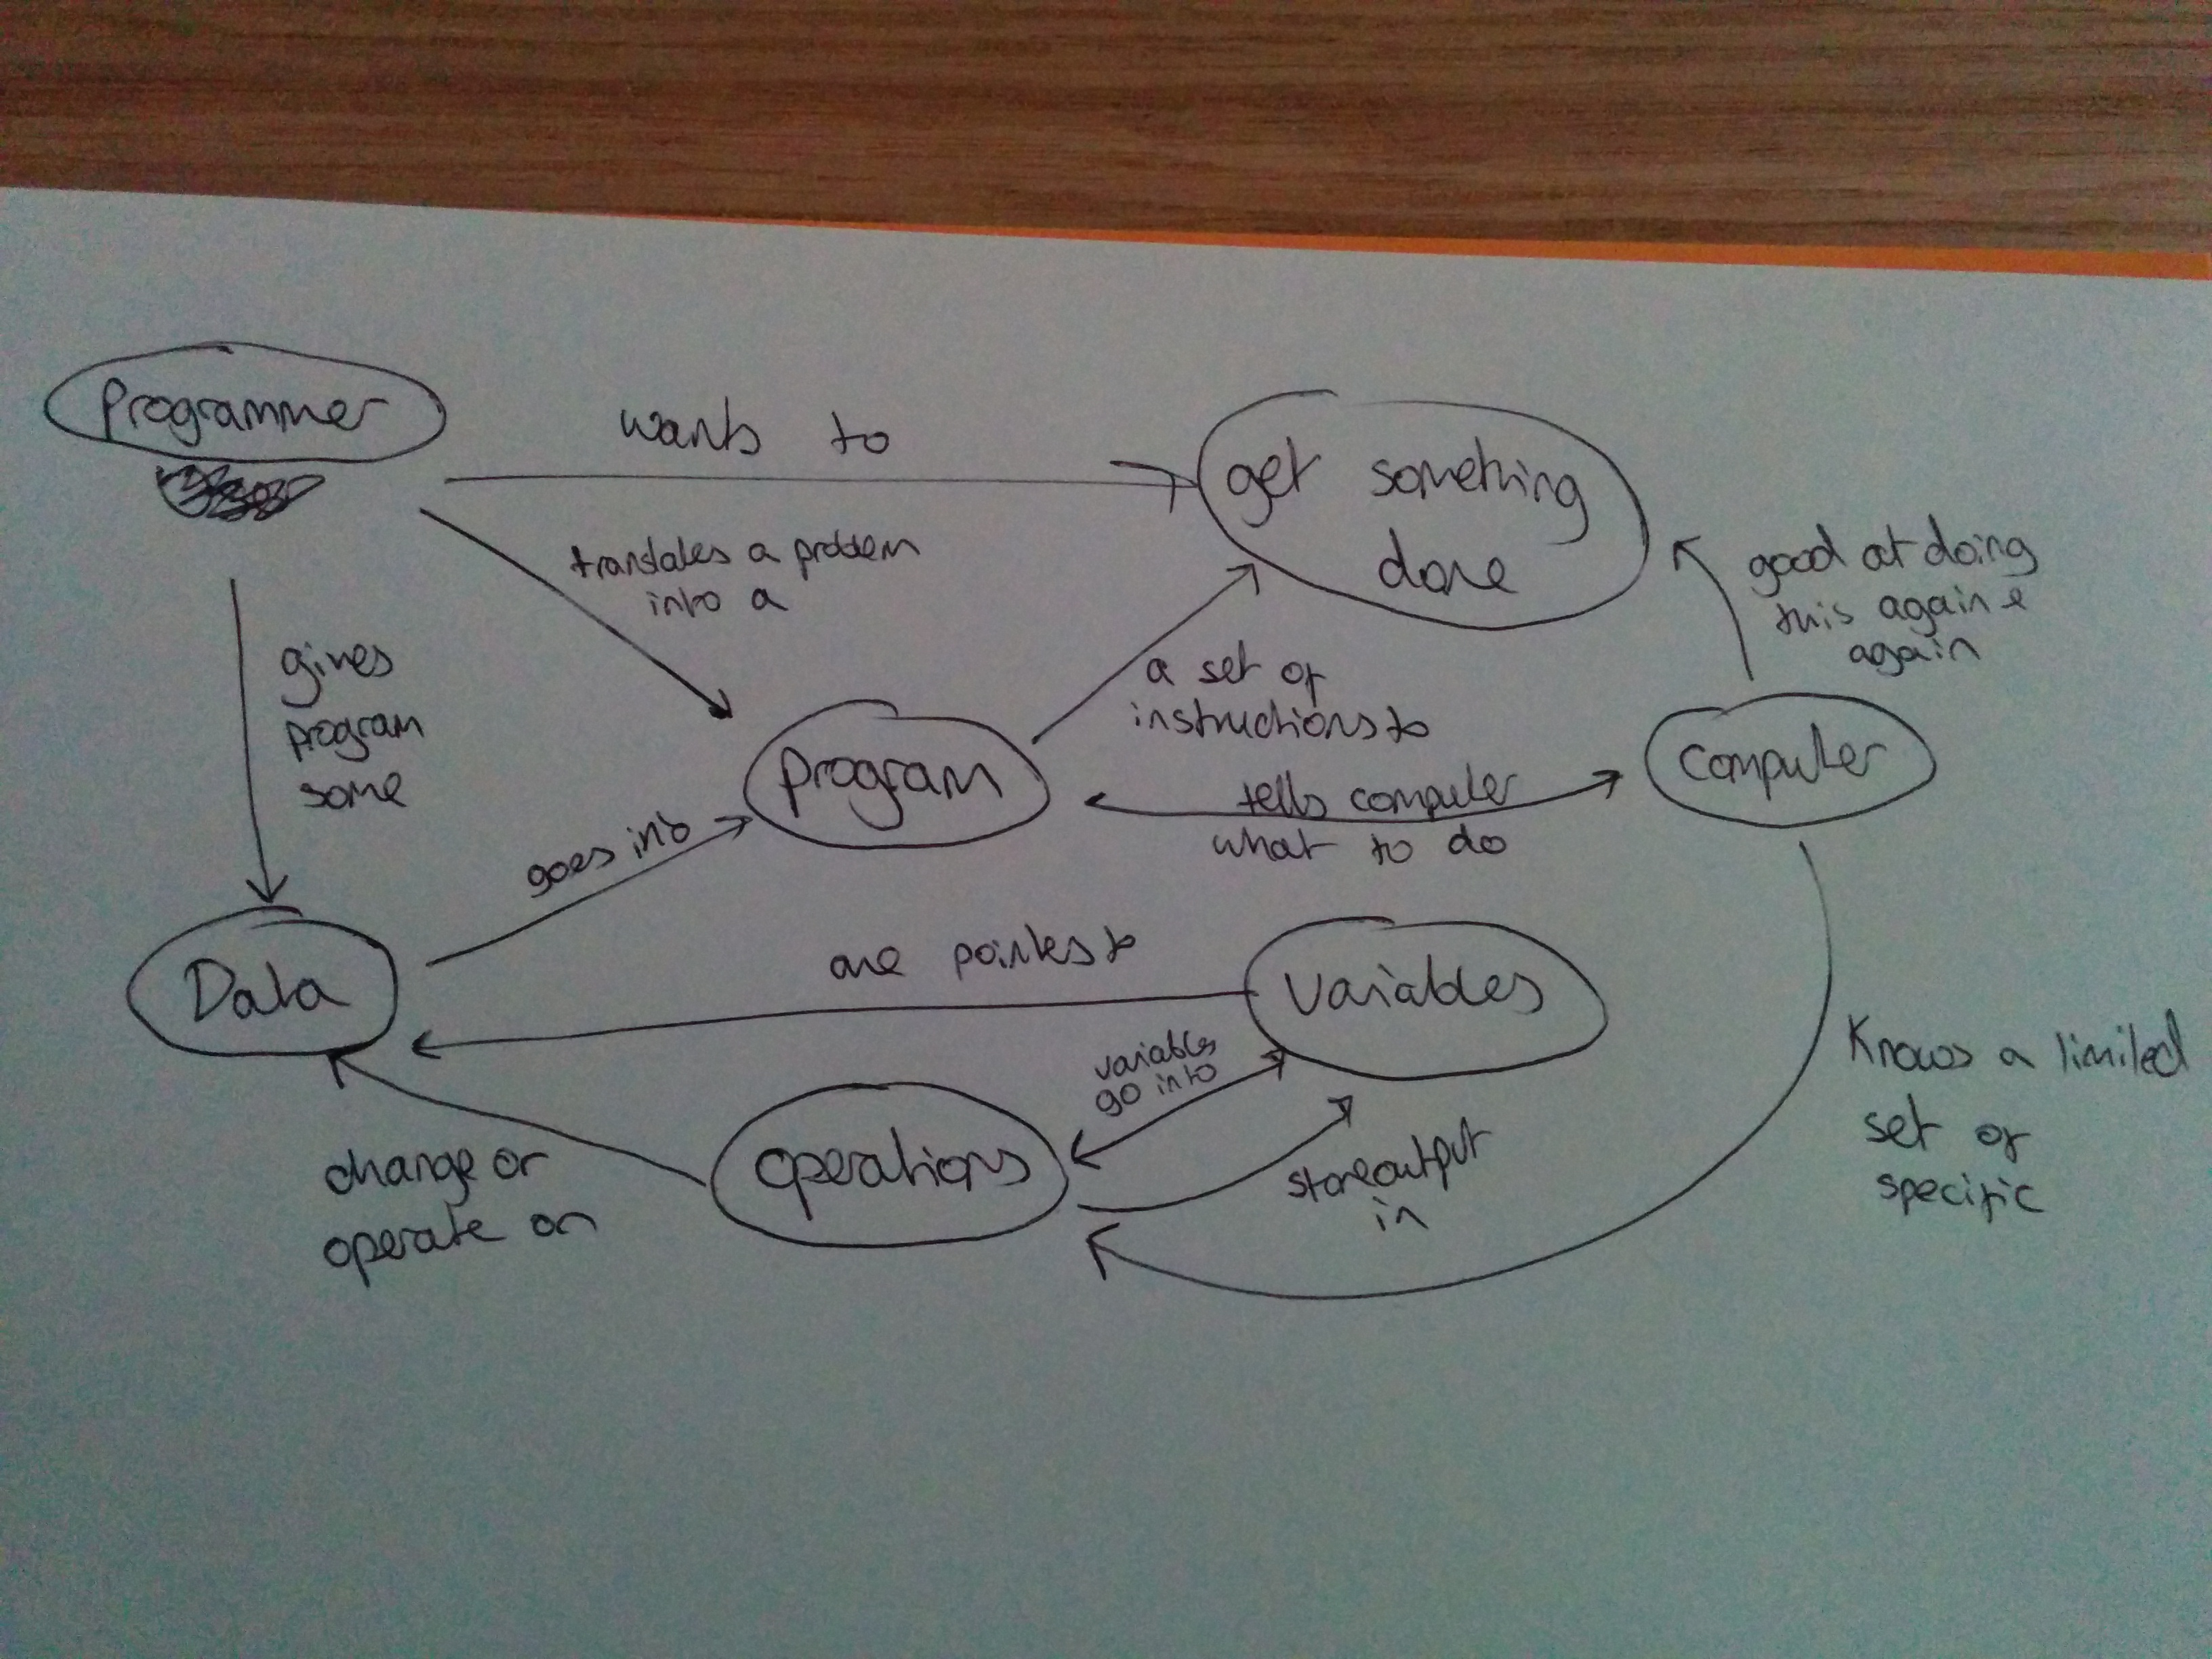 Programmer
wants to
get something
done
translates a problem
into a
good at doing
this again &
again
gives
program
some
a set of
instructions to
Program
computer
tells computer
what to do
goes into
Data
are pointes to
variables
variables
go into
Knows a limited
set of
specific
operations
store output
in
change or
operate on